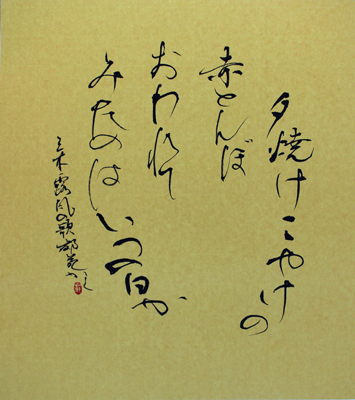 夕焼けこやけの
赤とんぼ
おわれて
みたのはいつの日か
三木露風の歌